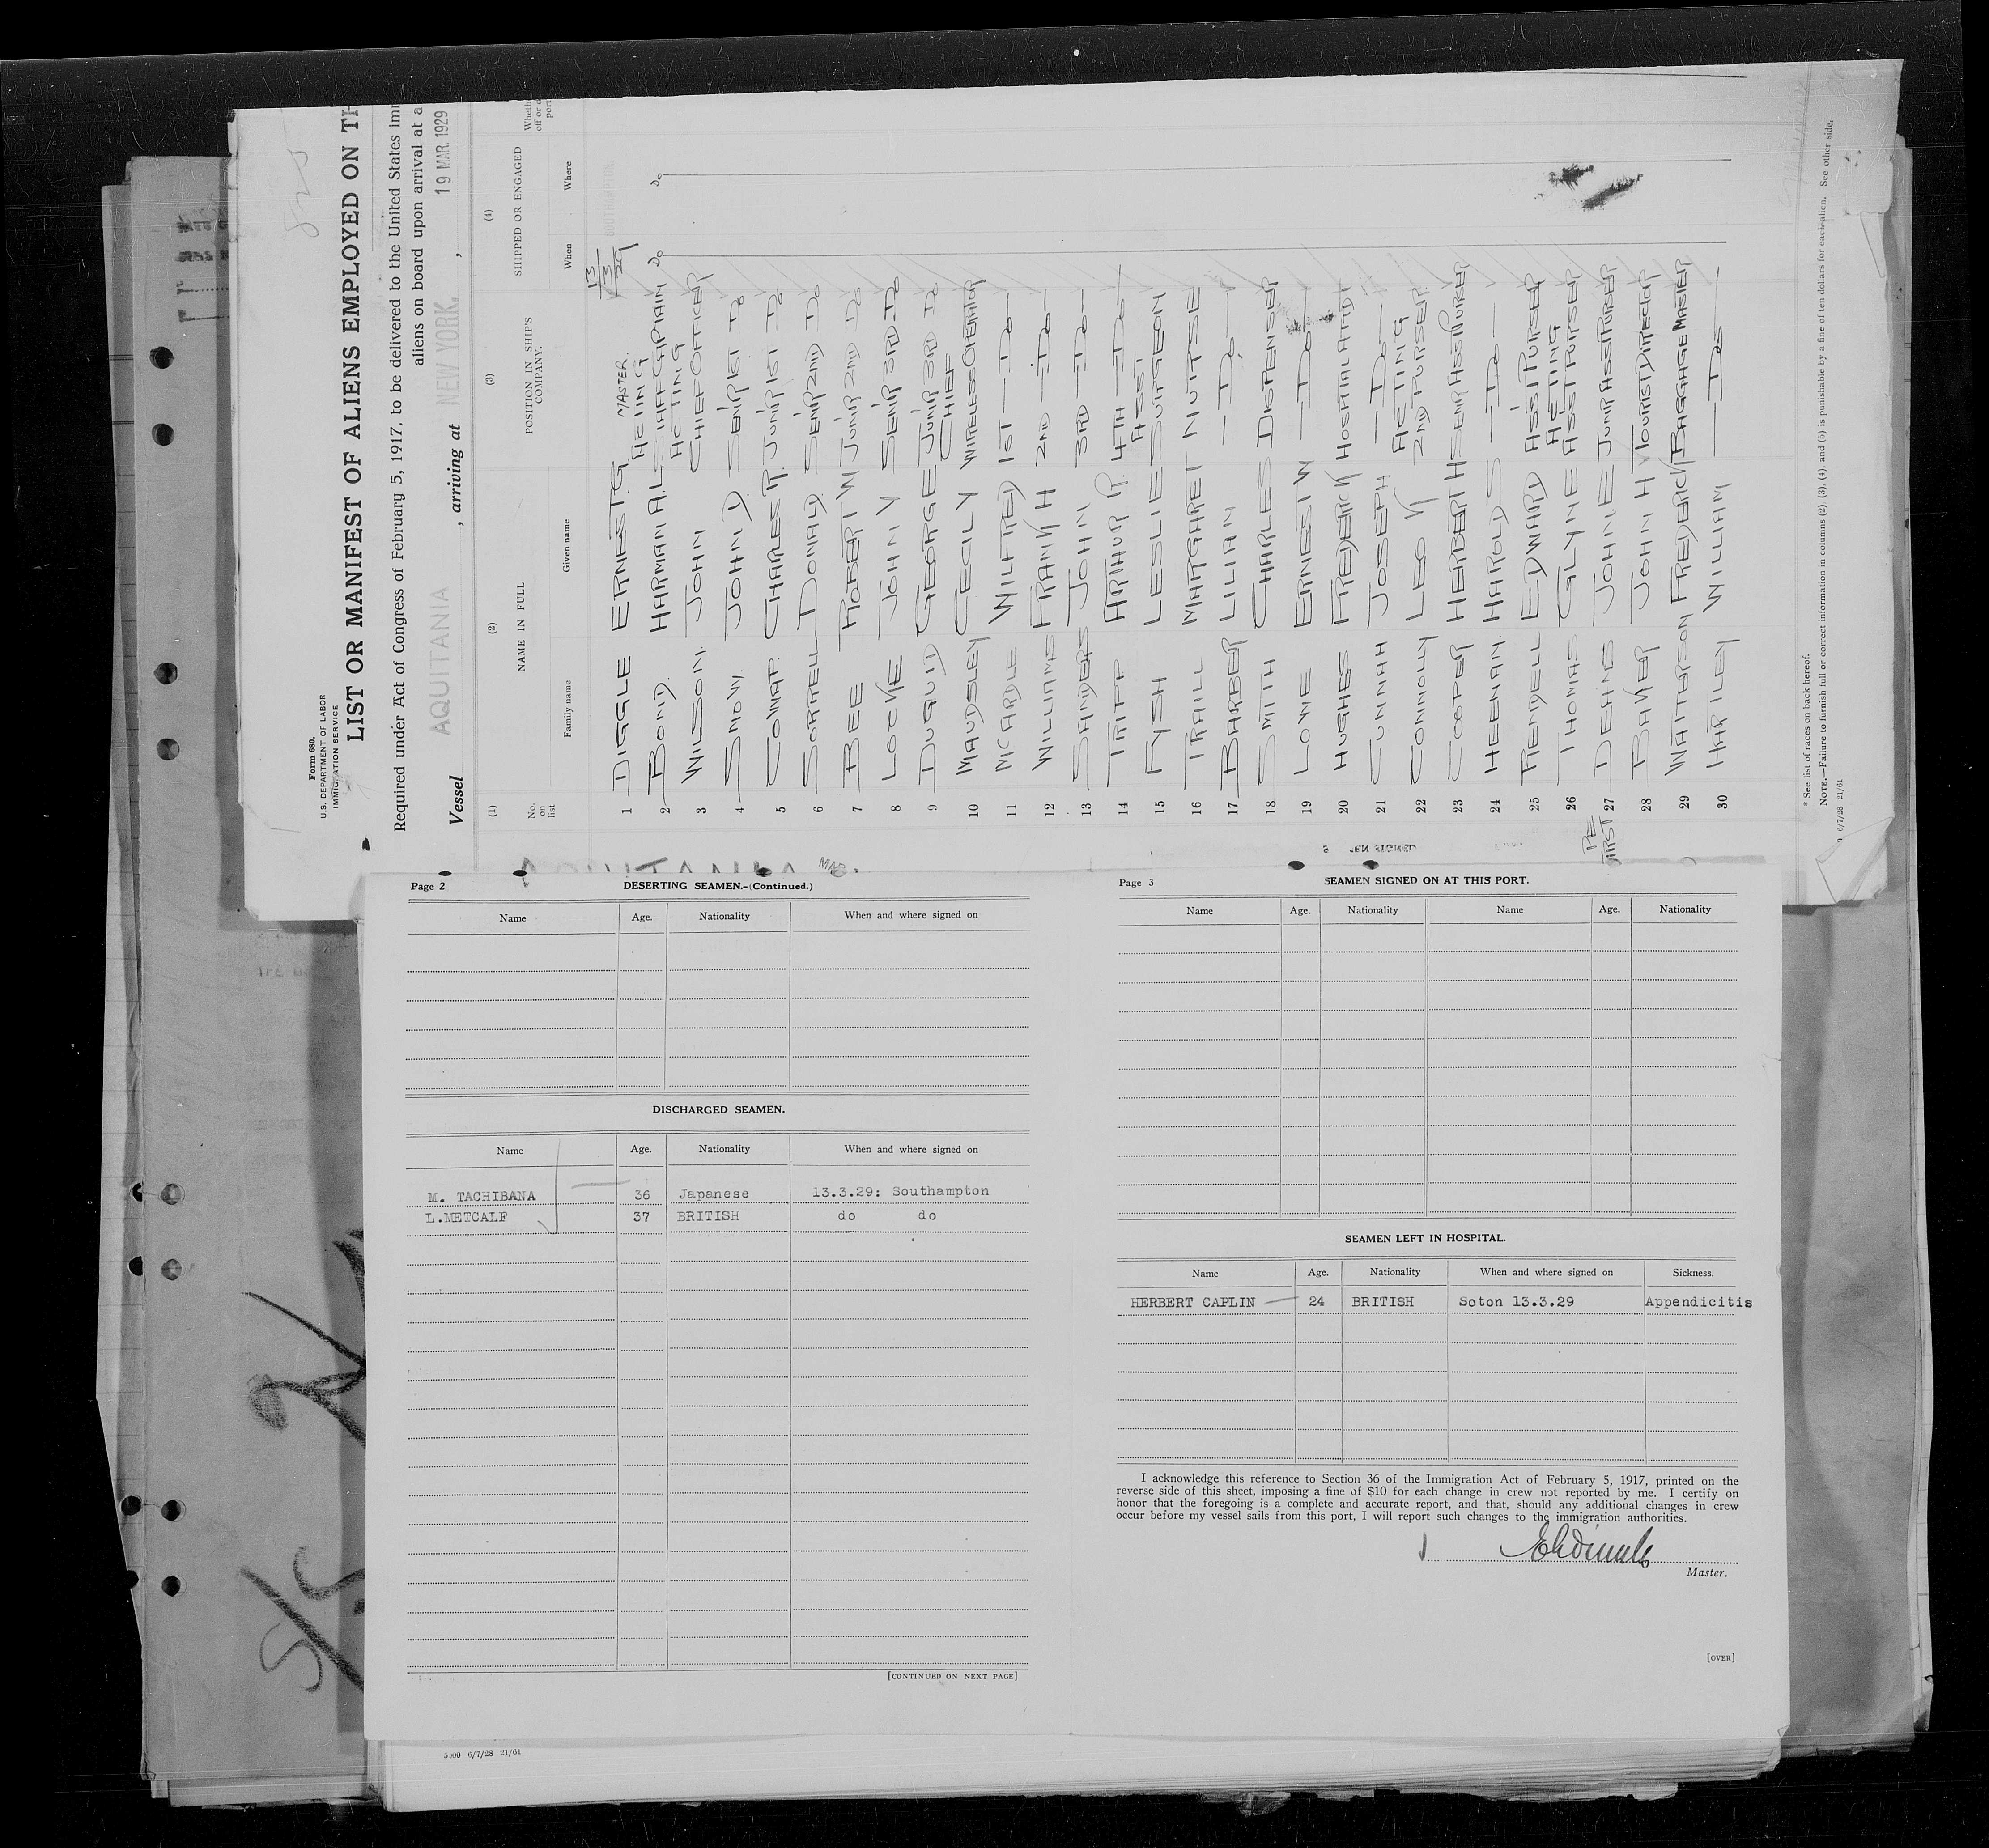 Form 680.
U.S. DEPARTMENT OF LABOR
IMMIGRATION SERVICE
LIST OR MANIFEST OF ALIENS EMPLOYED ON TH
Required under Act of Congress of February 5, 1917, to be delivered to the United States imm
aliens on board upon arrival at a
Vessel AQUITANIA , arriving at NEW YORK, , 19 MAR 1929
(1) (2) (3) (4)
No. on list NAME IN FULL POSITION IN SHIP'S COMPANY. SHIPPED OR ENGAGED
Family name Given name When Where
1 DIGGLE ERNEST.G. MASTER. 13/3/29 SOUTHAMPTON
2 BOND. HARMAN A.L ACTING STAFF CAPTAIN Do Do
3 WILSON. JOHN ACTING CHIEF OFFICER
4 JOHN D. SENR 1ST Do
5 CHARLES R. JUNR 1ST Do
6 SORRELL DONALD. SENR 2ND Do
7 BEE ROBERT W JUNR 2ND Do
8 LOCKE JOHN V SENR 3RD Do
9 DUGUID GEORGE JUNR 3RD Do
10 MAUDSLEY CECIL Y CHIEF WIRELESS OPERATOR
11 MCARDLE WILFRED 1ST Do
12 WILLIAMS FRANK H 2ND Do
13 SANDERS JOHN 3RD Do
14 TRIPP ARTHUR R. 4TH Do
15 FYSH LESLIE ASST SURGEON
16 TRAILL MARGARET NURSE
17 BARBER LILIAN Do
18 SMITH CHARLES DISPENSER
19 LOWE ERNEST W Do
20 HUGHES FREDERICK HOSPITAL ATTDT
21 CUNNAH JOSEPH Do
22 CONNOLLY LEO V ACTING 2ND PURSER
23 COOPER HERBERT H SENR ASST PURSER
24 HEENAN. HAROLD S Do
25 RENDELL EDWARD ASST PURSER
26 THOMAS GLYNE ACTING ASST PURSER
27 DEANS JOHN E JUNR ASST PURSER
28 BAKER JOHN H TOURIST DIRECTOR
29 WATTERSON FREDERICK BAGGAGE MASTER
30 HARTLEY WILLIAM Do
* See list of races on back hereof.
NOTE.—Failure to furnish full or correct information in columns (2), (3), (4), and (5) is punishable by a fine of ten dollars for each alien. See other side.
6/7/28 21/61
Page 2 DESERTING SEAMEN.-(Continued.)
Name Age. Nationality When and where signed on
DISCHARGED SEAMEN.
Name Age. Nationality When and where signed on
M. TACHIBANA 36 Japanese 13.3.29: Southampton
L.METCALF 37 BRITISH do do
[CONTINUED ON NEXT PAGE]
Page 3 SEAMEN SIGNED ON AT THIS PORT.
Name Age. Nationality Name Age. Nationality
SEAMEN LEFT IN HOSPITAL.
Name Age. Nationality When and where signed on Sickness.
HERBERT CAPLIN 24 BRITISH Soton 13.3.29 Appendicitis
I acknowledge this reference to Section 36 of the Immigration Act of February 5, 1917, printed on the
reverse side of this sheet, imposing a fine of $10 for each change in crew not reported by me. I certify on
honor that the foregoing is a complete and accurate report, and that, should any additional changes in crew
occur before my vessel sails from this port, I will report such changes to the immigration authorities.
Master.
[OVER]
6/7/28 21/61